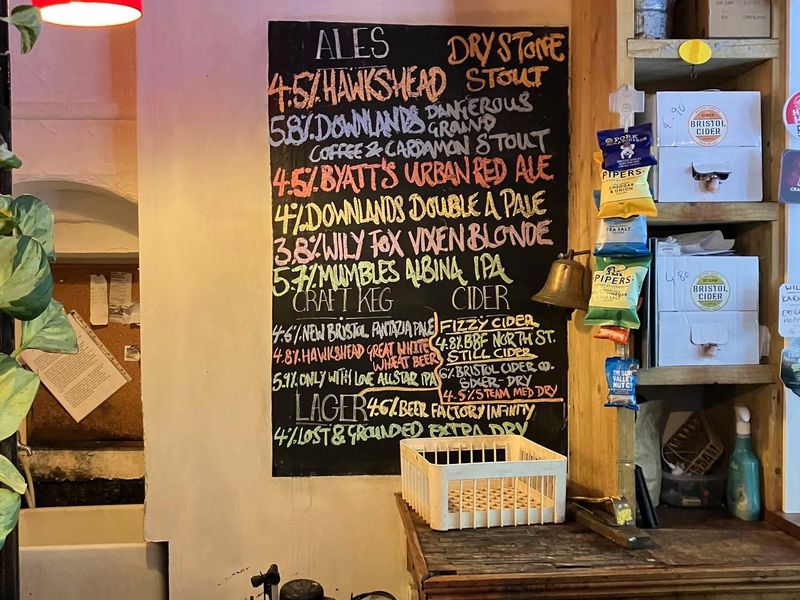 ALES
DRY STONE
4.5% HAWKSHEAD STOUT
5.8% DOWNLANDS DANGEROUS
GROUND
COFFEE & CARDAMON STOUT
4.5% BYATT'S URBAN RED ALE
4% DOWNLANDS DOUBLE A PALE
3.8% WILY FOX VIXEN BLONDE
5.7% MUMBLES ALBINA IPA
CRAFT KEG
4.6% NEW BRISTOL FANTAZIA PALE
4.8% HAWKSHEAD GREAT WHITE
WHEAT BEER
5.9% ONLY WITH LOVE ALLSTAR IPA
CIDER
FIZZY CIDER
4.8% BBF NORTH ST.
STILL CIDER
6% BRISTOL CIDER CO.
SIDER-DRY
4.5% STEAM MED DRY
LAGER 4.6% BEER FACTORY INFINITY
4% LOST & GROUNDED EXTRA DRY
4.90
BRISTOL
CIDER
PORK
PIPERS
CHEDDAR
& ONION
SEA SALT
PIPERS
4.80
STEAM
BRISTOL
CIDER